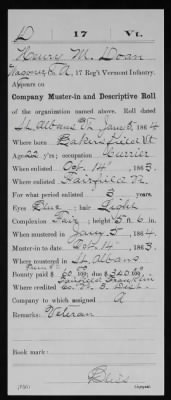 D 17 Vt.
Henry M. Doan
Wagoner, Co. A, 17 Reg't Vermont Infantry.
Appears on
Company Muster-in and Descriptive Roll
of the organization named above. Roll dated
St. Albans Vt. Jan 5, 1864
Where born Bakersfield Vt
Age 22 y'rs; occupation Currier
When enlisted Oct. 14, 1863.
Where enlisted Fairfield Vt.
For what period enlisted 3 years.
Eyes Blue; hair Light
Complexion Fair; height 5 ft. 6 in.
When mustered in Jan 5, 1864.
Muster-in to date Oct. 14, 1863.
Where mustered in St. Albans
Bounty paid $ 60 100; due $ 340 100
Where credited Fairfield Franklin
Co. Vt. 3. Dist.
Company to which assigned A
Remarks: Veteran
Book mark:
Bliss
(336) Copyist.